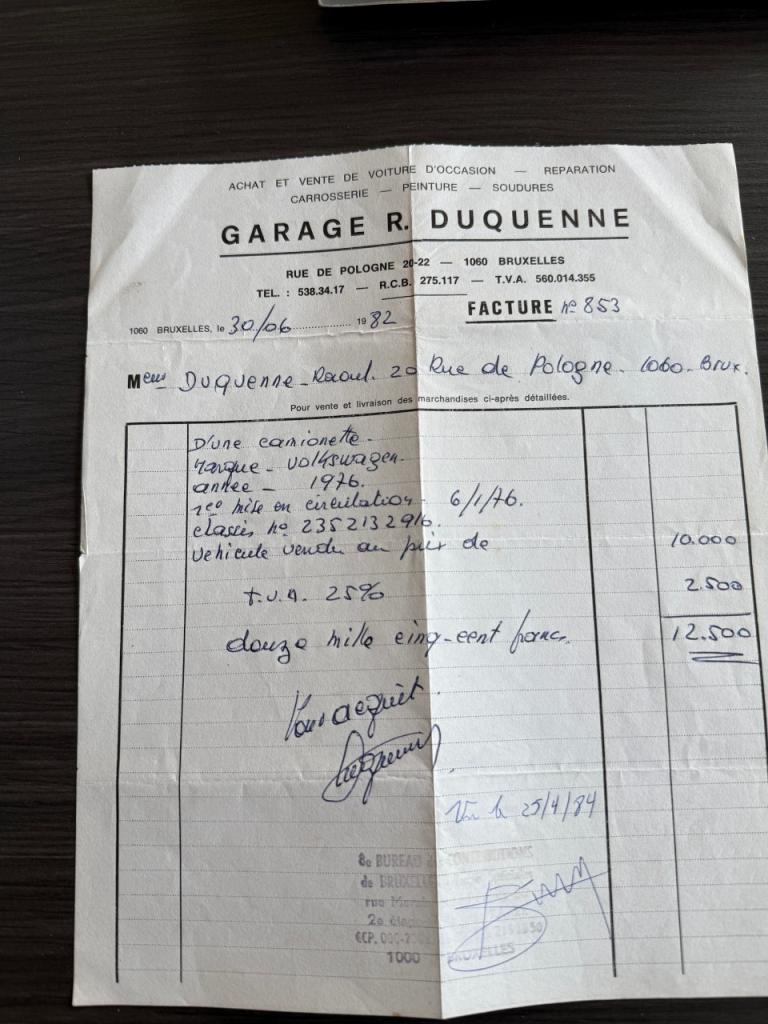 ACHAT ET VENTE DE VOITURE D'OCCASION — REPARATION
CARROSSERIE — PEINTURE — SOUDURES
GARAGE R. DUQUENNE
RUE DE POLOGNE 20-22 — 1060 BRUXELLES
TEL. : 538.34.17 — R.C.B. 275.117 — T.V.A. 560.014.355
FACTURE n° 853
1060 BRUXELLES, le 30/06 1982
Meur Duquenne - Raoul. 20 Rue de Pologne - 1060 - Brux.
Pour vente et livraison des marchandises ci-après détaillées.
D'une camionette -
Marque - Volkswagen.
année - 1976.
1ere mise en circulation - 6/1/76.
classis n° 2352132916.
vehicule vendu au prix de 10.000
T.V.A. 25% 2.500
douze mille cinq-cent francs. 12.500
Pour acquit.
Vu le 25/4/84
8e BUREAU CONTRIBUTIONS
de BRUXELLES
rue
2e étage
CCP.
1000 BRUXELLES